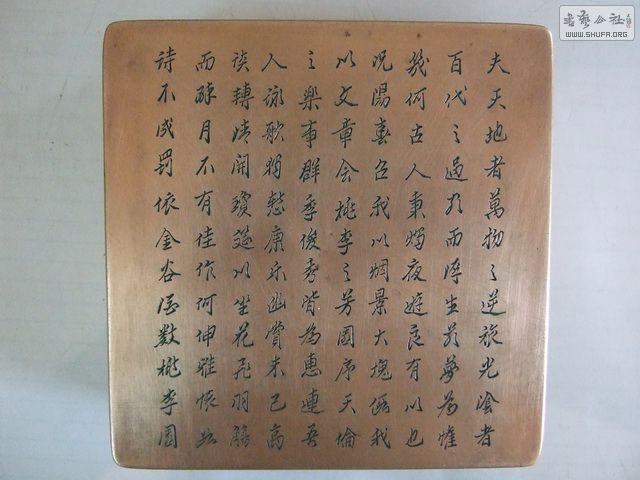 夫天地者萬物之逆旅光陰者
百代之過客而浮生若夢為懽
幾何古人秉燭夜遊良有以也
况陽春召我以烟景大塊假我
以文章會桃李之芳園序天倫
之樂事群季俊秀皆為惠連吾
人詠歌獨慙康樂幽賞未已高
談轉清開瓊筵以坐花飛羽觴
而醉月不有佳作何伸雅懷如
詩不成罰依金谷酒數桃李園
書藝公社
WWW.SHUFA.ORG